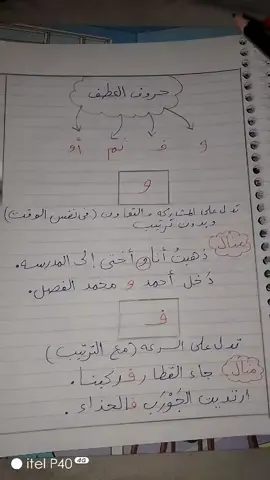 حروف العطف
و ف ثم أو
و
تدل على المشاركة والتعاون (في نفس الوقت)
وبدون ترتيب
مثال ذهبتُ أنا و أختي إلى المدرسه.
دَخل أحمد و محمد الفصل.
ف
تدل على السرعه (مع الترتيب)
مثال جاء القطار فركبنا.
ارتديت الجَوْرَب فالحذاء.
itel P40